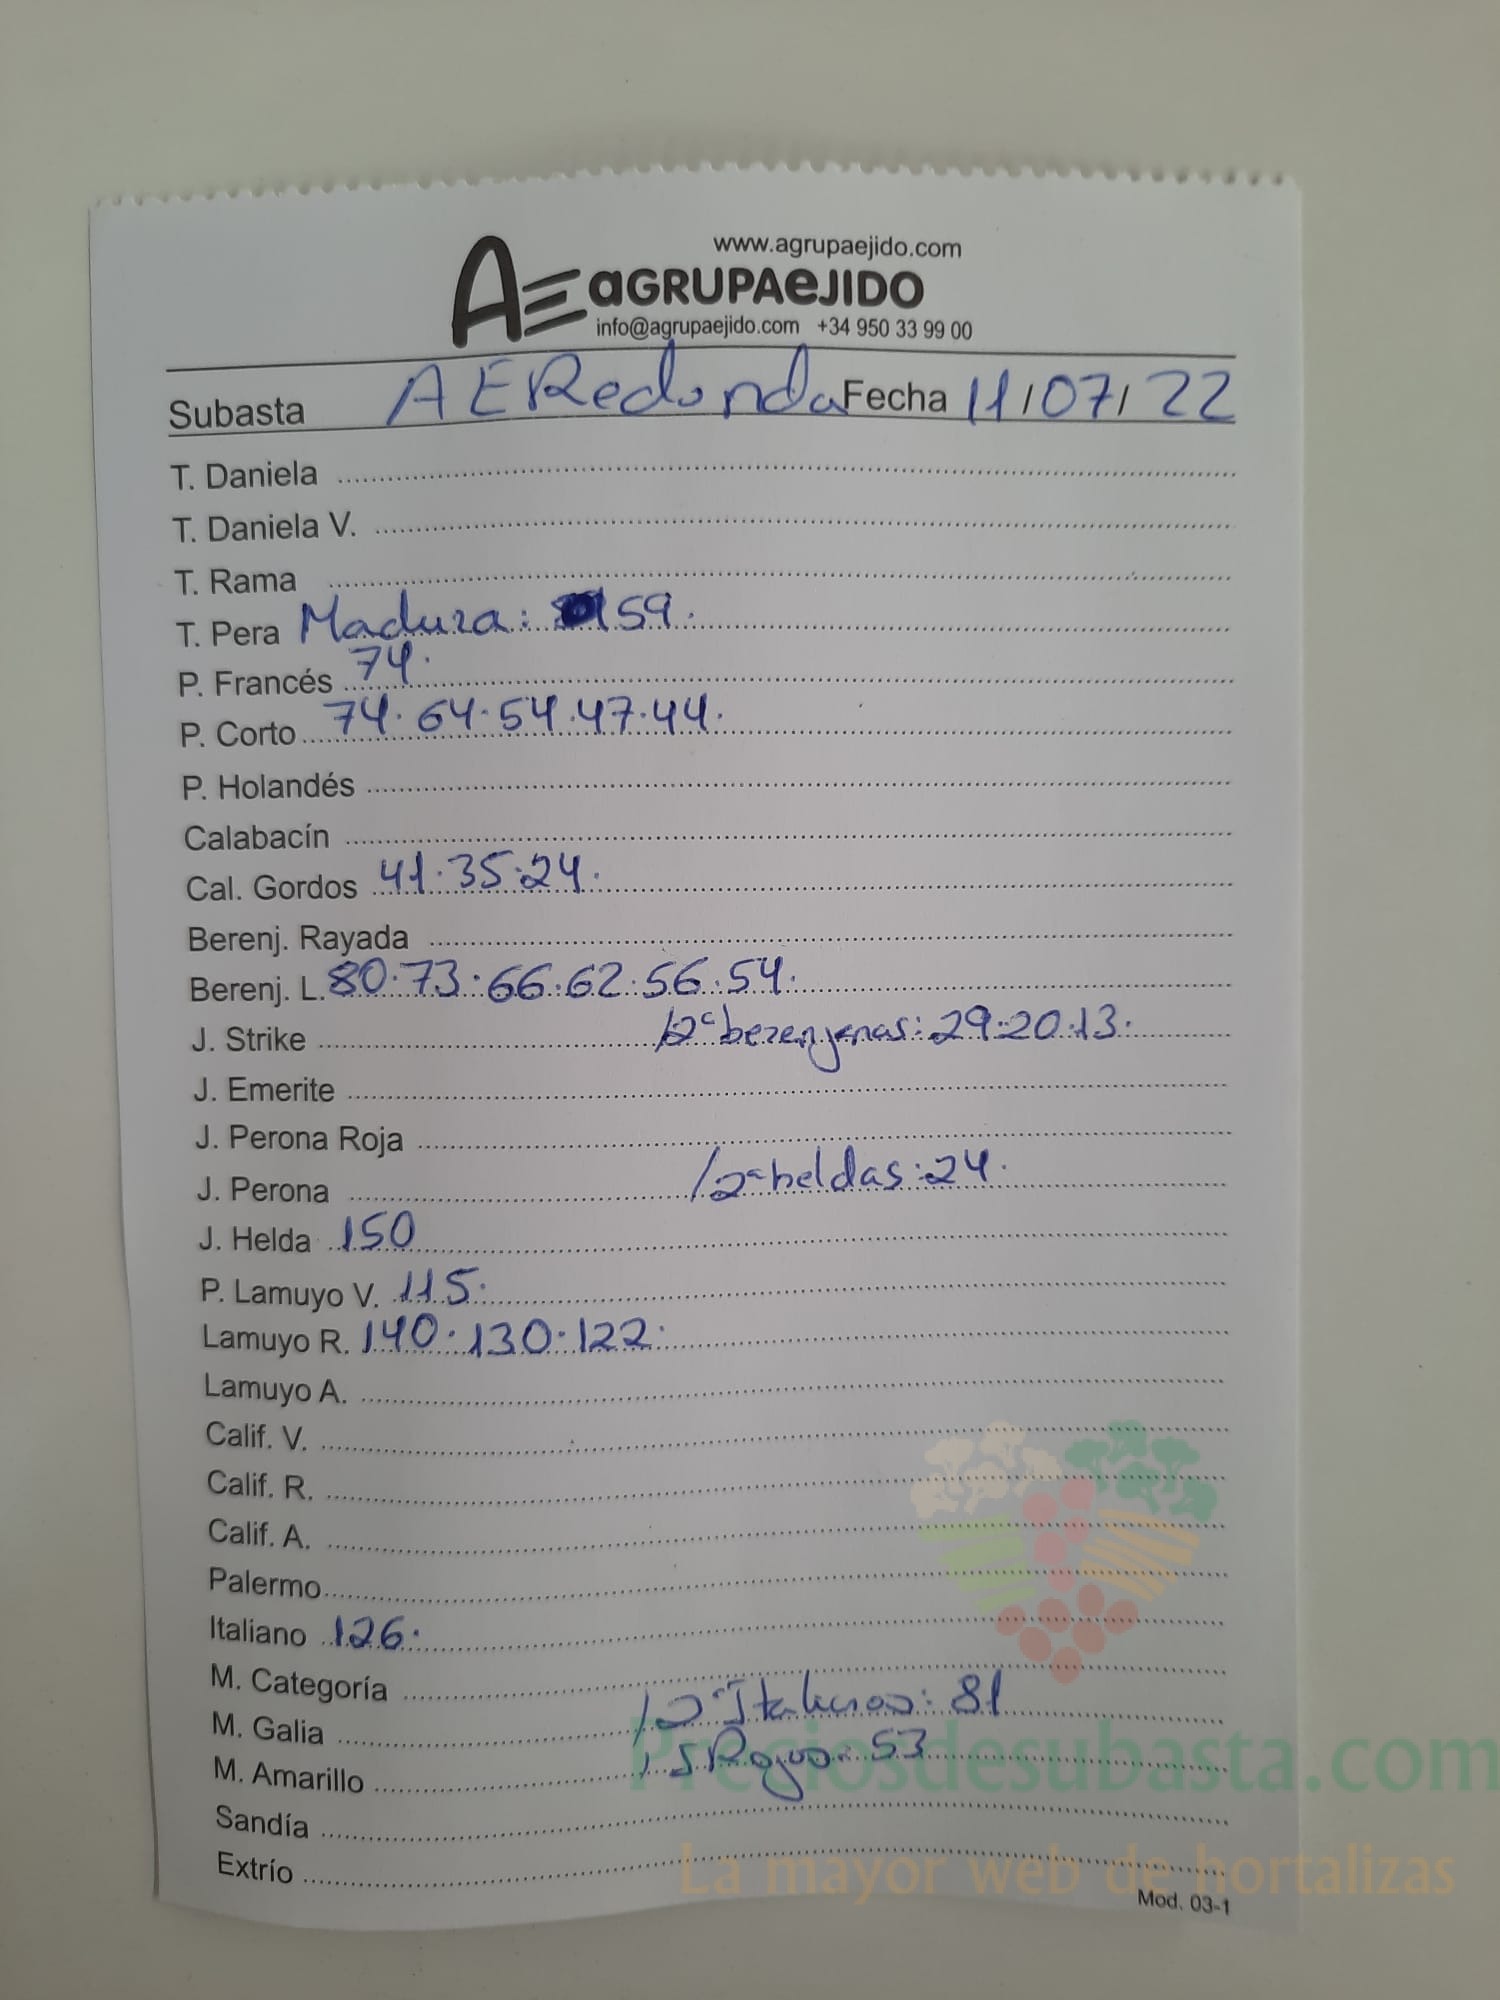 www.agrupaejido.com
AE aGRUPAeJIDO
info@agrupaejido.com +34 950 33 99 00
Subasta AERedonda Fecha 11/07/22
T. Daniela
T. Daniela V.
T. Rama
T. Pera Madura: 59.
P. Francés 74.
P. Corto 74. 64. 54. 47. 44.
P. Holandés
Calabacín
Cal. Gordos 41. 35. 24.
Berenj. Rayada
Berenj. L. 80. 73. 66. 62. 56. 54.
J. Strike /2ª berenjenas: 29. 20. 13.
J. Emerite
J. Perona Roja
J. Perona /2ª heldas: 24.
J. Helda 150
P. Lamuyo V. 115.
Lamuyo R. 140. 130. 122.
Lamuyo A.
Calif. V.
Calif. R.
Calif. A.
Palermo
Italiano 126.
M. Categoría
M. Galia /2ª Italianos: 81
M. Amarillo Rojos: 53
Preciosdesubasta.com
Sandía
Extrío
La mayor web de hortalizas
Mod. 03-1